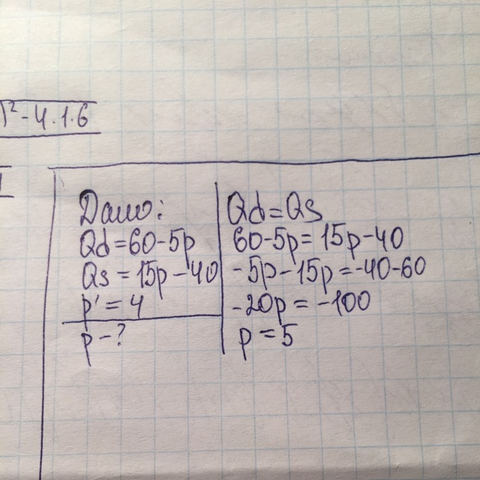 )² - 4.1.6
Дано:
Qd = 60 - 5p
Qs = 15p - 40
p' = 4
p - ?
Qd = Qs
60 - 5p = 15p - 40
-5p - 15p = -40 - 60
-20p = -100
p = 5